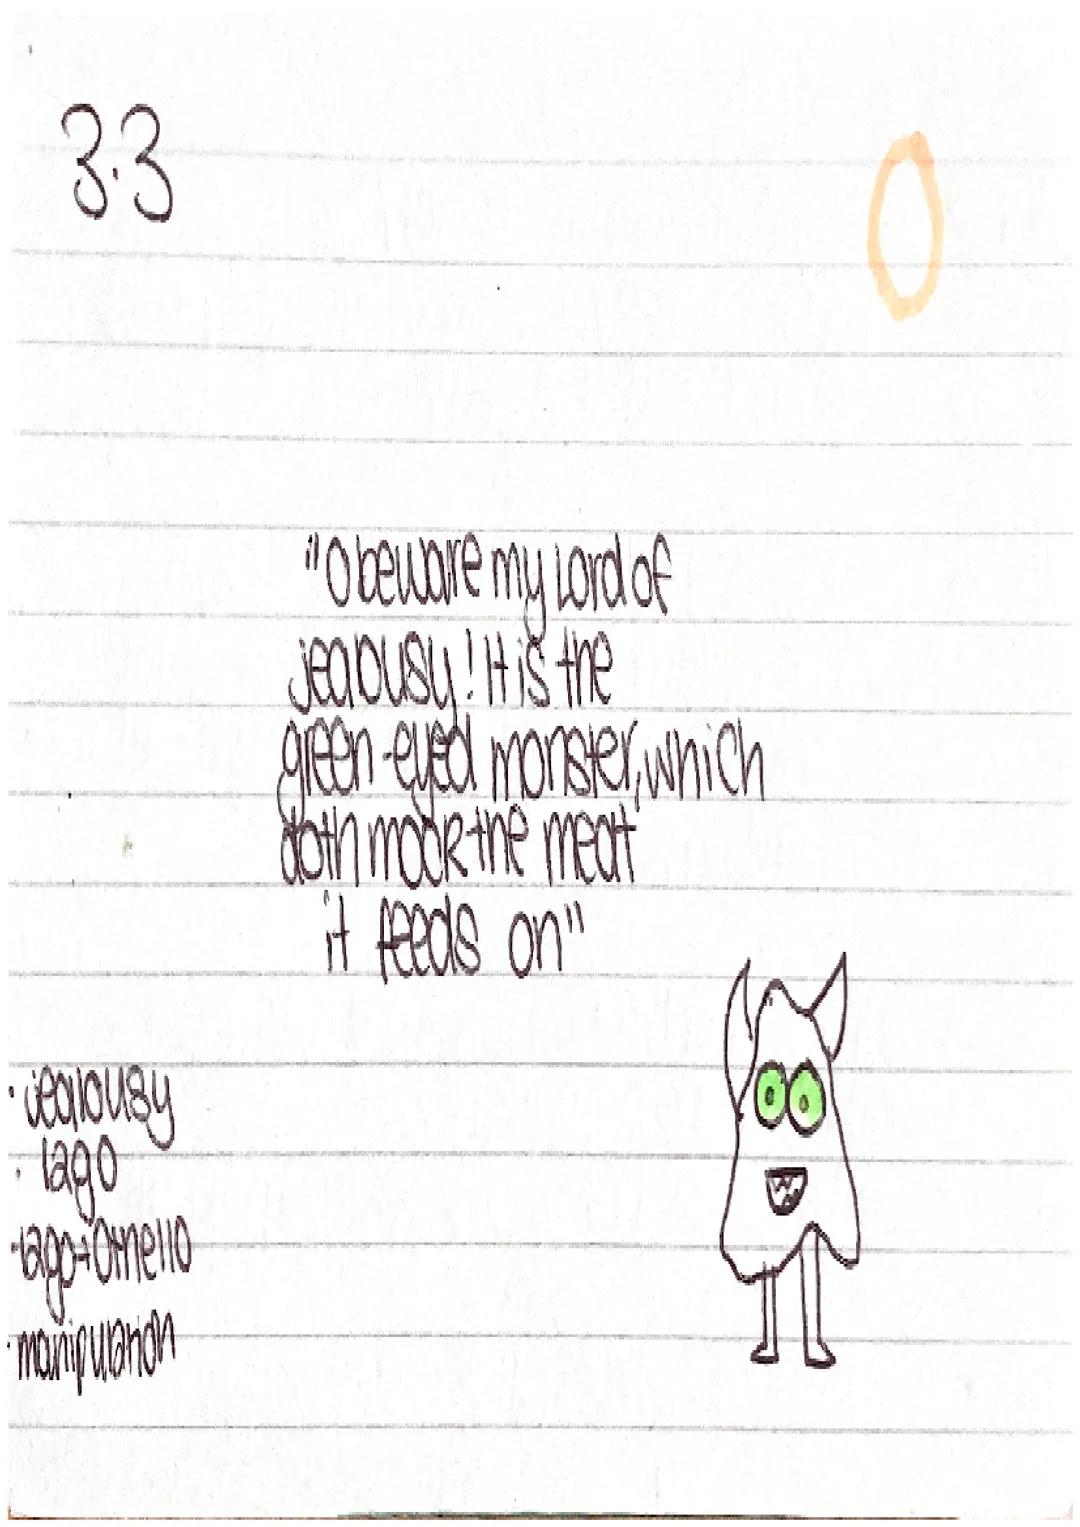 3.3
O
"O beware my Lord of
jealousy! It is the
green-eyed monster, which
doth mock the meat
it feeds on"
· jealousy
· Iago
· Iago + Othello
· manipulation